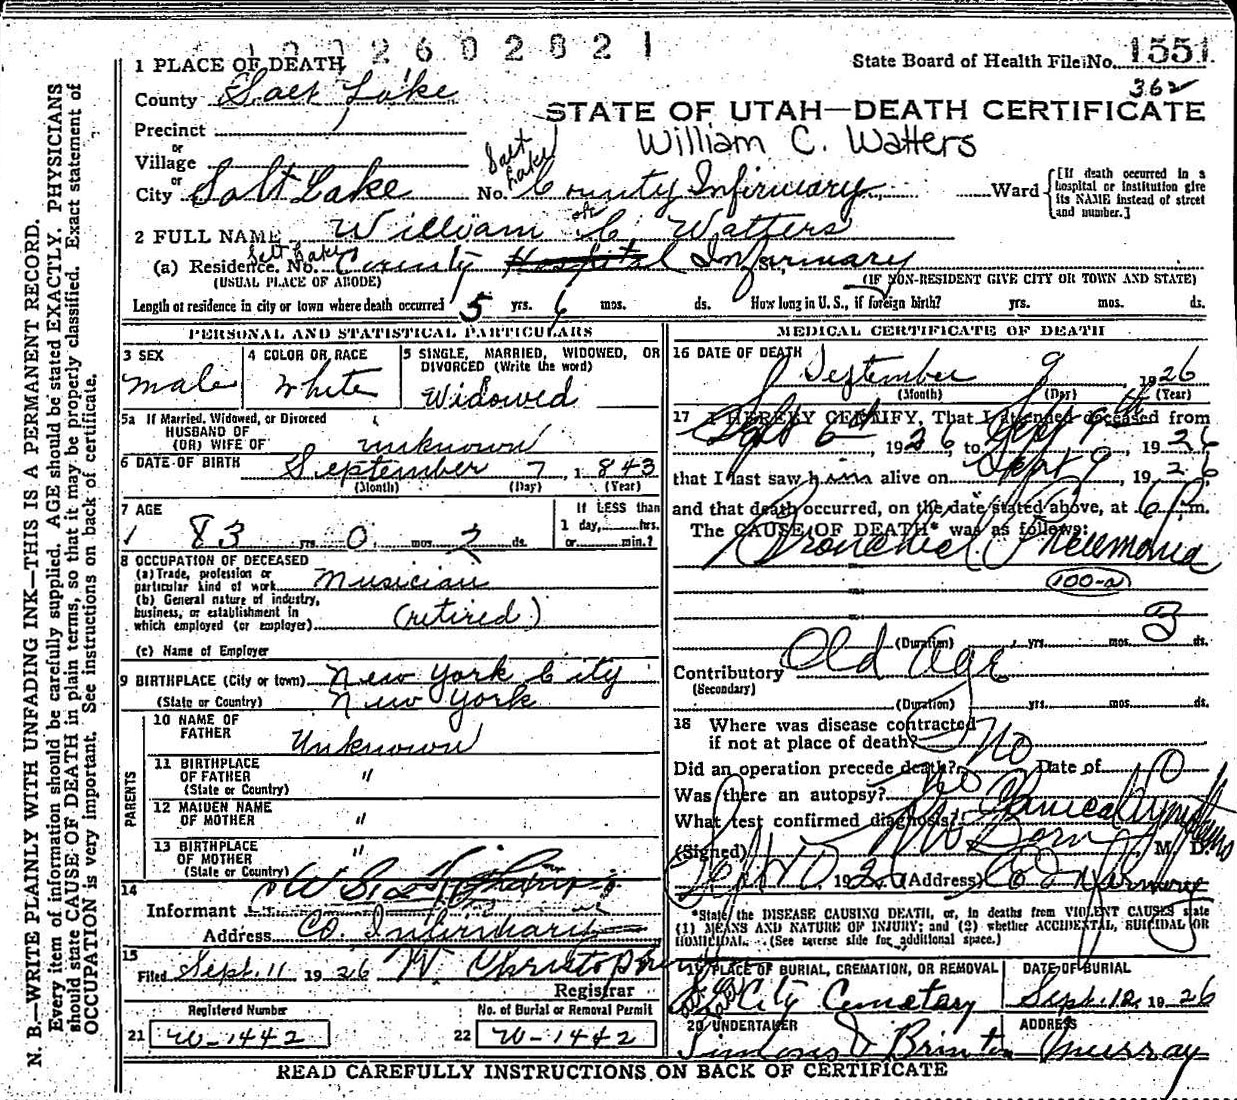 1002602821
1 PLACE OF DEATH
State Board of Health File No. 1551
362
County Salt Lake
STATE OF UTAH—DEATH CERTIFICATE
Precinct
William C. Watters
or
Village
or
City Salt Lake No. Salt Lake County Infirmary Ward [If death occurred in a hospital or institution give its NAME instead of street and number.]
2 FULL NAME William C Watters
(a) Residence. No. Salt Lake County Hospital Infirmary St.,
(USUAL PLACE OF ABODE) (IF NON-RESIDENT GIVE CITY OR TOWN AND STATE)
Length of residence in city or town where death occurred 5 yrs. 6 mos. ds. How long in U. S., if foreign birth? yrs. mos. ds.
PERSONAL AND STATISTICAL PARTICULARS
3 SEX
male
4 COLOR OR RACE
White
5 SINGLE, MARRIED, WIDOWED, OR DIVORCED (Write the word)
Widowed
5a If Married, Widowed, or Divorced
HUSBAND OF
(OR) WIFE OF unknown
6 DATE OF BIRTH September 7, 1843
(Month) (Day) (Year)
7 AGE
83 yrs. 0 mos. 2 ds.
If LESS than
1 day, hrs.
or min.?
8 OCCUPATION OF DECEASED
(a) Trade, profession or
particular kind of work Musician
(b) General nature of industry,
business, or establishment in
which employed (or employer) (retired)
(c) Name of Employer
9 BIRTHPLACE (City or town) New York City
(State or Country) New York
PARENTS
10 NAME OF
FATHER Unknown
11 BIRTHPLACE
OF FATHER "
(State or Country)
12 MAIDEN NAME
OF MOTHER "
13 BIRTHPLACE
OF MOTHER "
(State or Country)
14
Informant
Address Co. Infirmary
15
Filed Sept. 11 1926 W Christopherson
Registrar
Registered Number
21 W-1442
No. of Burial or Removal Permit
22 W-1442
MEDICAL CERTIFICATE OF DEATH
16 DATE OF DEATH
September 9, 1926
(Month) (Day) (Year)
17 I HEREBY CERTIFY, That I attended deceased from
Sept 6th, 1926, to Sept 9th, 1926
that I last saw him alive on Sept 9, 1926,
and that death occurred, on the date stated above, at 6 P.m.
The CAUSE OF DEATH* was as follows:
Bronchial Pneumonia
(100-a)
(Duration) yrs. mos. 3 ds.
Contributory Old Age
(Secondary)
(Duration) yrs. mos. ds.
18 Where was disease contracted
if not at place of death?
Did an operation precede death? No Date of 0
Was there an autopsy? no
What test confirmed diagnosis? Clinical Symptoms
(Signed) M. D.
Sept 10 1926 (Address) Co Infirmary
*State the DISEASE CAUSING DEATH, or, in deaths from VIOLENT CAUSES state
(1) MEANS AND NATURE OF INJURY; and (2) whether ACCIDENTAL, SUICIDAL OR
HOMICIDAL. (See reverse side for additional space.)
19 PLACE OF BURIAL, CREMATION, OR REMOVAL
City Cemetary
DATE OF BURIAL
Sept. 12, 1926
20 UNDERTAKER
Brinton
ADDRESS
Murray
READ CAREFULLY INSTRUCTIONS ON BACK OF CERTIFICATE
N. B.—WRITE PLAINLY WITH UNFADING INK—THIS IS A PERMANENT RECORD.
Every item of information should be carefully supplied. AGE should be stated EXACTLY. PHYSICIANS
should state CAUSE OF DEATH in plain terms, so that it may be properly classified. Exact statement of
OCCUPATION is very important. See instructions on back of certificate.